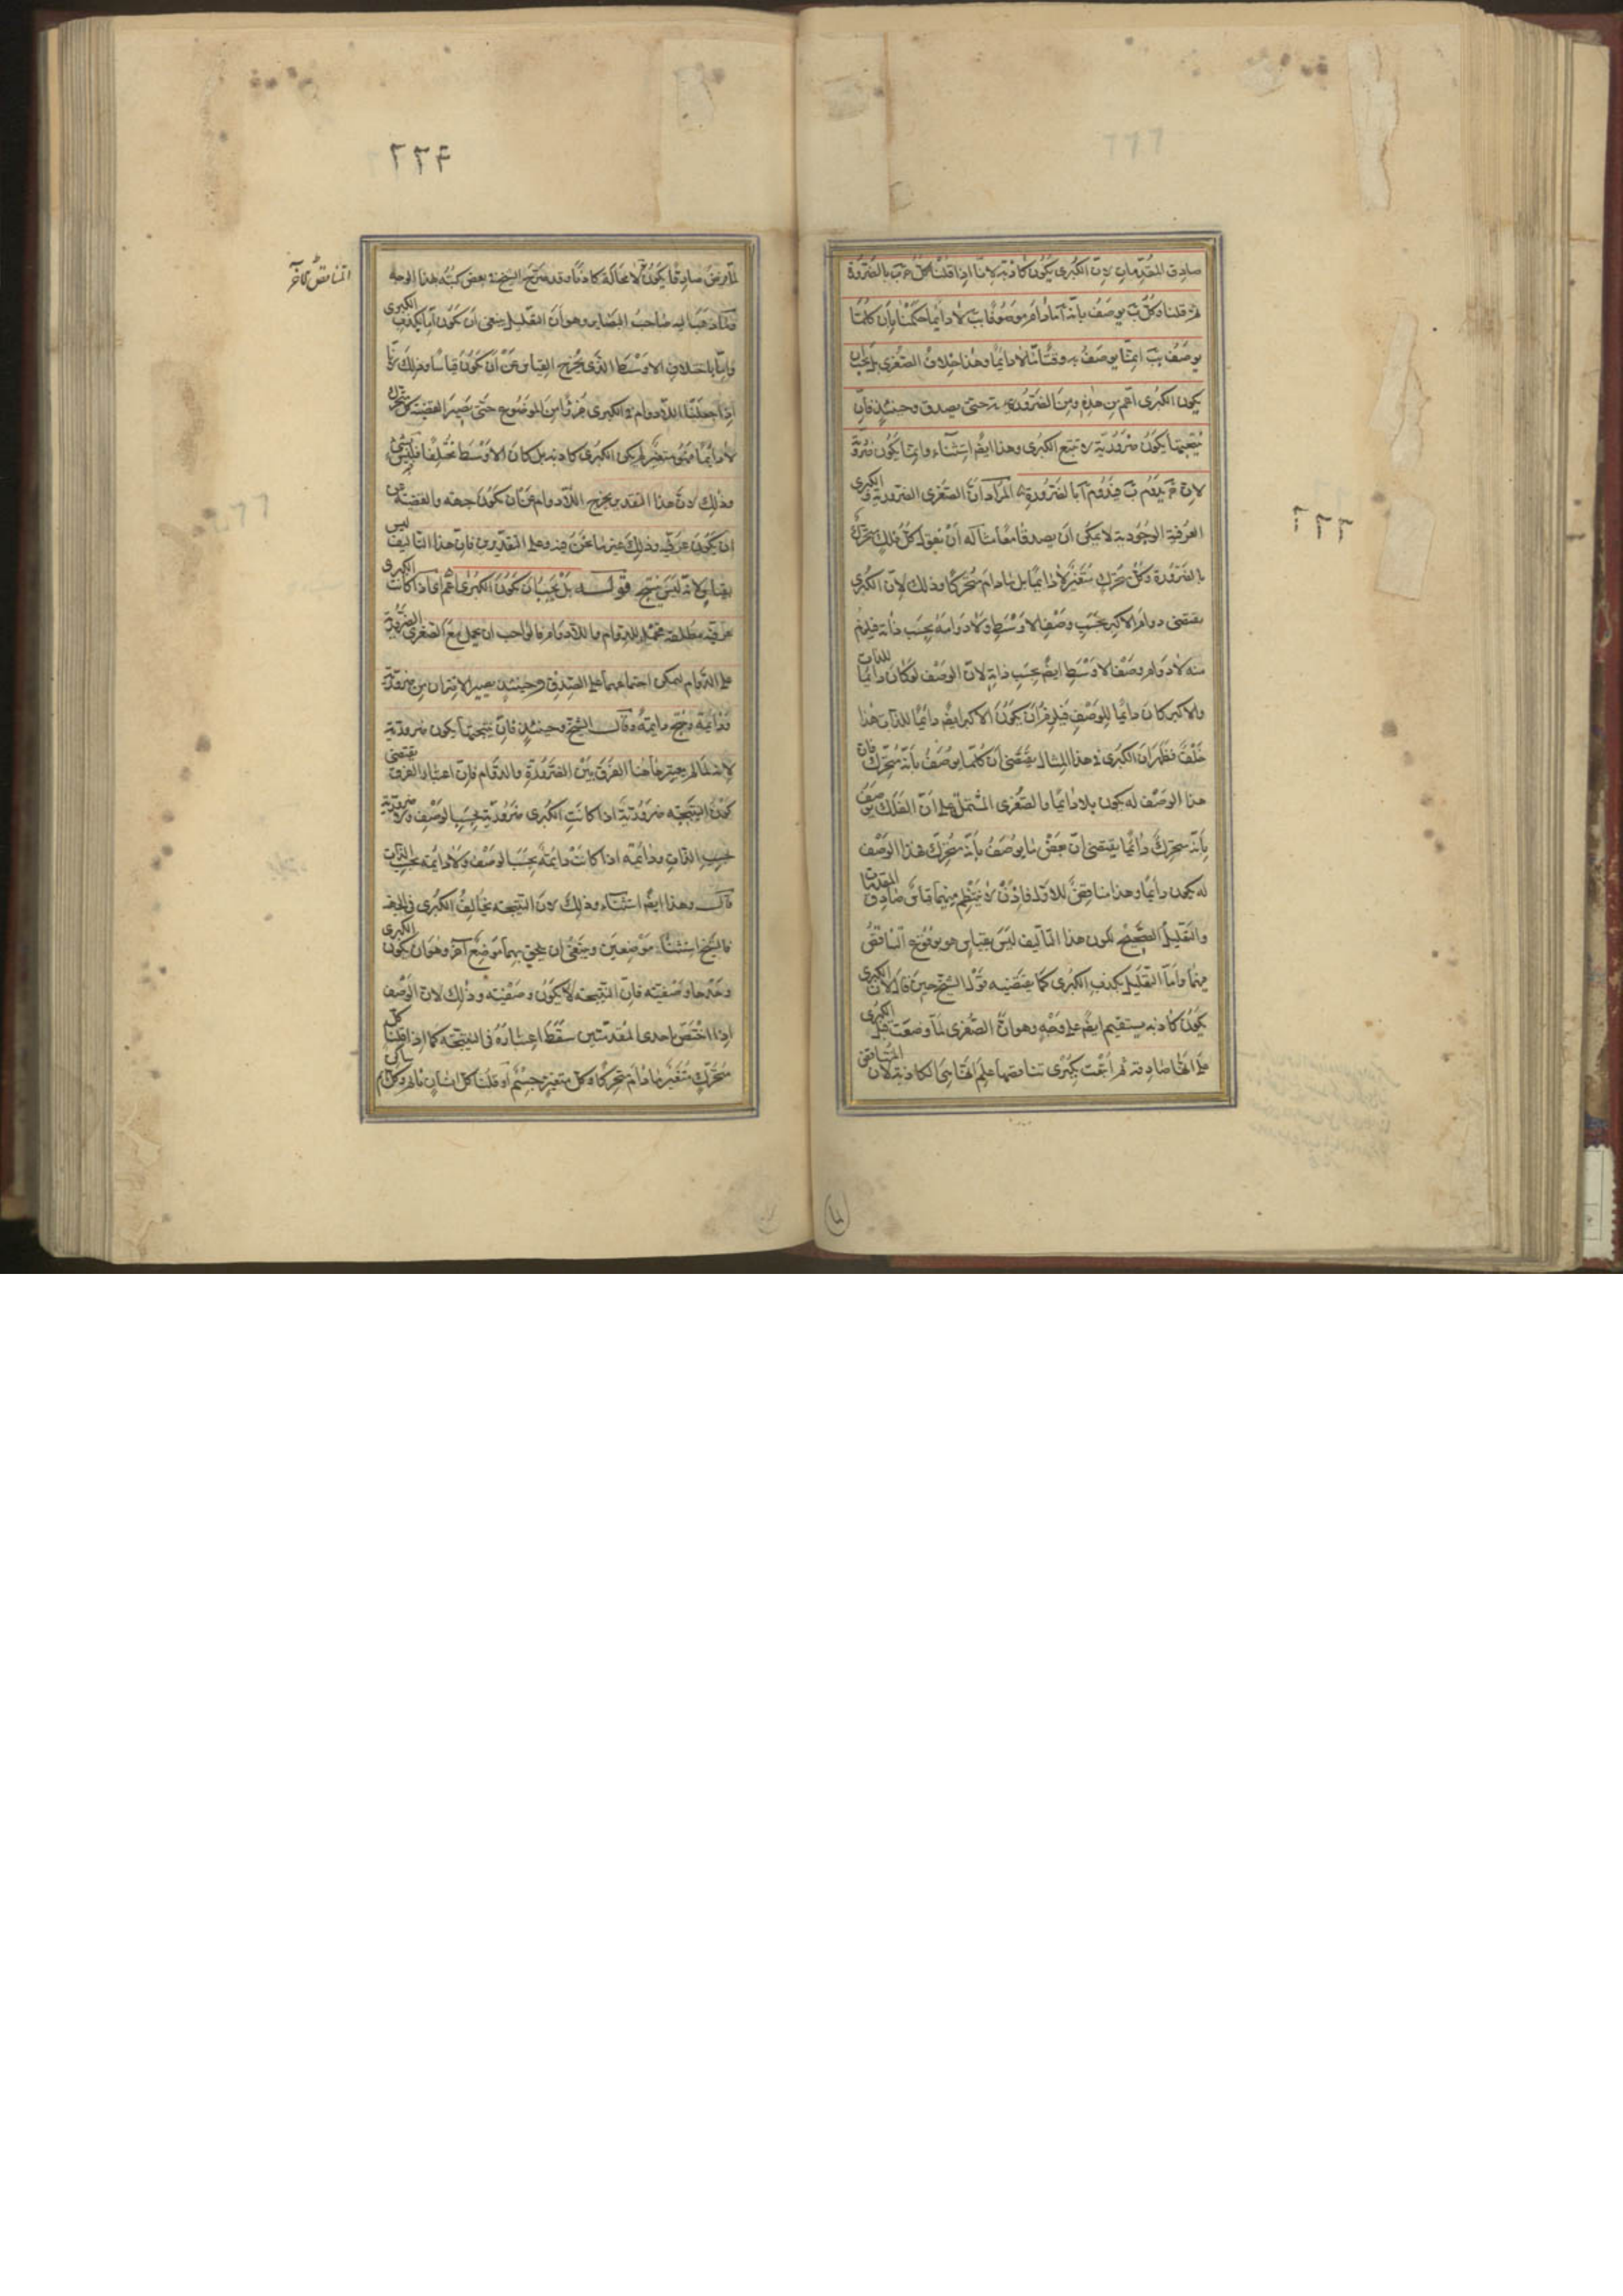 صادق المقدمات لان الكبرى يكون كاذبة لانا اذا قلنا كل ج ب بالضرورة
ثم قلنا وكل ب يوصف بانه آ مادام موصوفا بب لا دائما حكمنا بان كلما
يوصف بب انما يوصف به وقتا ما لا دائما وهذا خلاف الصغرى بل يجب ان
يكون الكبرى اعم من هذه ومن الضرورية حتى يصدق وحينئذ فان
نتيجتها يكون ضرورية لا تتبع الكبرى وهذا ايضا استثناء وانما يكون ضرورة
لان ج يدوم ب فيدوم آ بالضرورة المراد ان الصغرى الضرورية والكبرى
العرفية الوجودية لا يمكن ان يصدقا معا مثاله ان نقول كل فلك متحرك
بالضرورة وكل متحرك متغير لا دائما بل مادام متحركا وذلك لان الكبرى
يقتضى دوام الاكبر بحسب وصف الاوسط ولا دوامه بحسب ذاته فيلزم
منه لا دوام وصف الاوسط ايضا بحسب ذاته لان الوصف لو كان دائما للذات
والاكبر كان دائما للوصف فيلزم ان يكون الاكبر ايضا دائما للذات هذا
خلف فظهر ان الكبرى فى هذا المثال يقتضى ان كلما يوصف بانه متحرك فان
هذا الوصف له يكون بلا دائما والصغرى المشتمل على ان الفلك يوصف
بانه متحرك دائما يقتضى ان بعض ما يوصف بانه متحرك فهذا الوصف
له يكون دائما وهذا مناقض للاول فاذن لا ينتظم منهما قياس صادق المقدمات
والتعليل الصحيح لكون هذا التاليف ليس بقياس هو بوقوع التناقض
فيهما واما التعليل بكذب الكبرى كما يقتضيه قول الشيخ حين قال لان الكبرى
يكون كاذبة يستقيم ايضا على وجه وهو ان الصغرى لما وضعت قبل الكبرى
على انها صادقة ثم اتبعت بكبرى تناقضها علم انها هى الكاذبة لان المناقض
٢٢٤
التناقض لآخر
لما فرض صادقا يكون لا محالة كاذبا وقد صرح الشيخ فى بعض كتبه بهذا الوجه
اما بكذب الكبرى
واما باختلاف الاوسط الذى يخرج القياس عن ان يكون قياسا وذلك لانا
اذا جعلنا اللادوام فى الكبرى جزءا من الموضوع حتى يصير القضية كل متحرك
لا دائما فهو متغير لم يكن الكبرى كاذبة بل كان الاوسط مختلفا
وذلك لان هذا التقدير يخرج اللادوام عن ان يكون جهة والقضية عن
ان يكون عرفية وذلك غير ما نحن فيه وعلى التقديرين فان هذا التاليف ليس
بقياس لانه ليس ينتج قوله بل يجب ان يكون الكبرى اعم اى اذا كانت الكبرى
عرفية مطلقة محتملة للدوام واللادوام فالواجب ان يحمل مع الصغرى الضرورية
على الدوام ليمكن اجتماعهما على الصدق وحينئذ يصير الاقتران من ضرورية
ودائمة وينتج دائمة وقال الشيخ وحينئذ فان نتيجتها يكون ضرورية
لانه لم يعتبر هاهنا الفرق بين الضرورة والدوام فان اعتبار الفرق يقتضى
كون النتيجة ضرورية اذا كانت الكبرى ضرورية بحسب الوصف
بحسب الذات ودائمة اذا كانت دائمة بحسب الوصف ولا دائمة بحسب الذات
قال وهذا ايضا استثناء وذلك لان النتيجة تخالف الكبرى فى الجهة
فالشيخ استثنا موضعين وينبغى ان يلحق بهما موضع آخر وهو ان يكون الكبرى
وحدها وصفية فان النتيجة لا يكون وصفية وذلك لان الوصف
اذا اختص باحدى المقدمتين سقط اعتباره فى النتيجة كما اذا قلنا كل
متحرك متغير مادام متحركا وكل متغير جسم او قلنا كل انسان